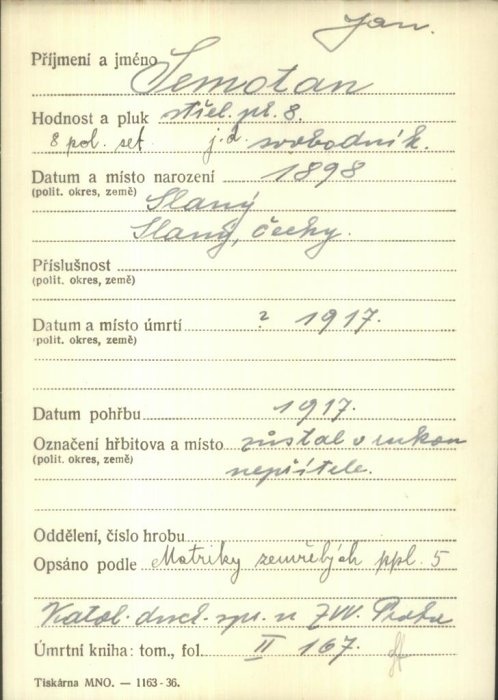 Jan.
Příjmení a jméno Semotan
Hodnost a pluk střel. pl. 8.
8 pol. set. j.d. svobodník.
Datum a místo narození 1898
(polit. okres, země) Slaný
Slaný, Čechy.
Příslušnost
(polit. okres, země)
Datum a místo úmrtí ? 1917.
(polit. okres, země)
Datum pohřbu 1917.
Označení hřbitova a místo zůstal v rukou
(polit. okres, země) nepřítele.
Oddělení, číslo hrobu
Opsáno podle Matriky zemřelých ppl. 5
Katol. duch. spr. u ZVV. Praha
Úmrtní kniha: tom., fol. II 167.
Tiskárna MNO. — 1163-36.